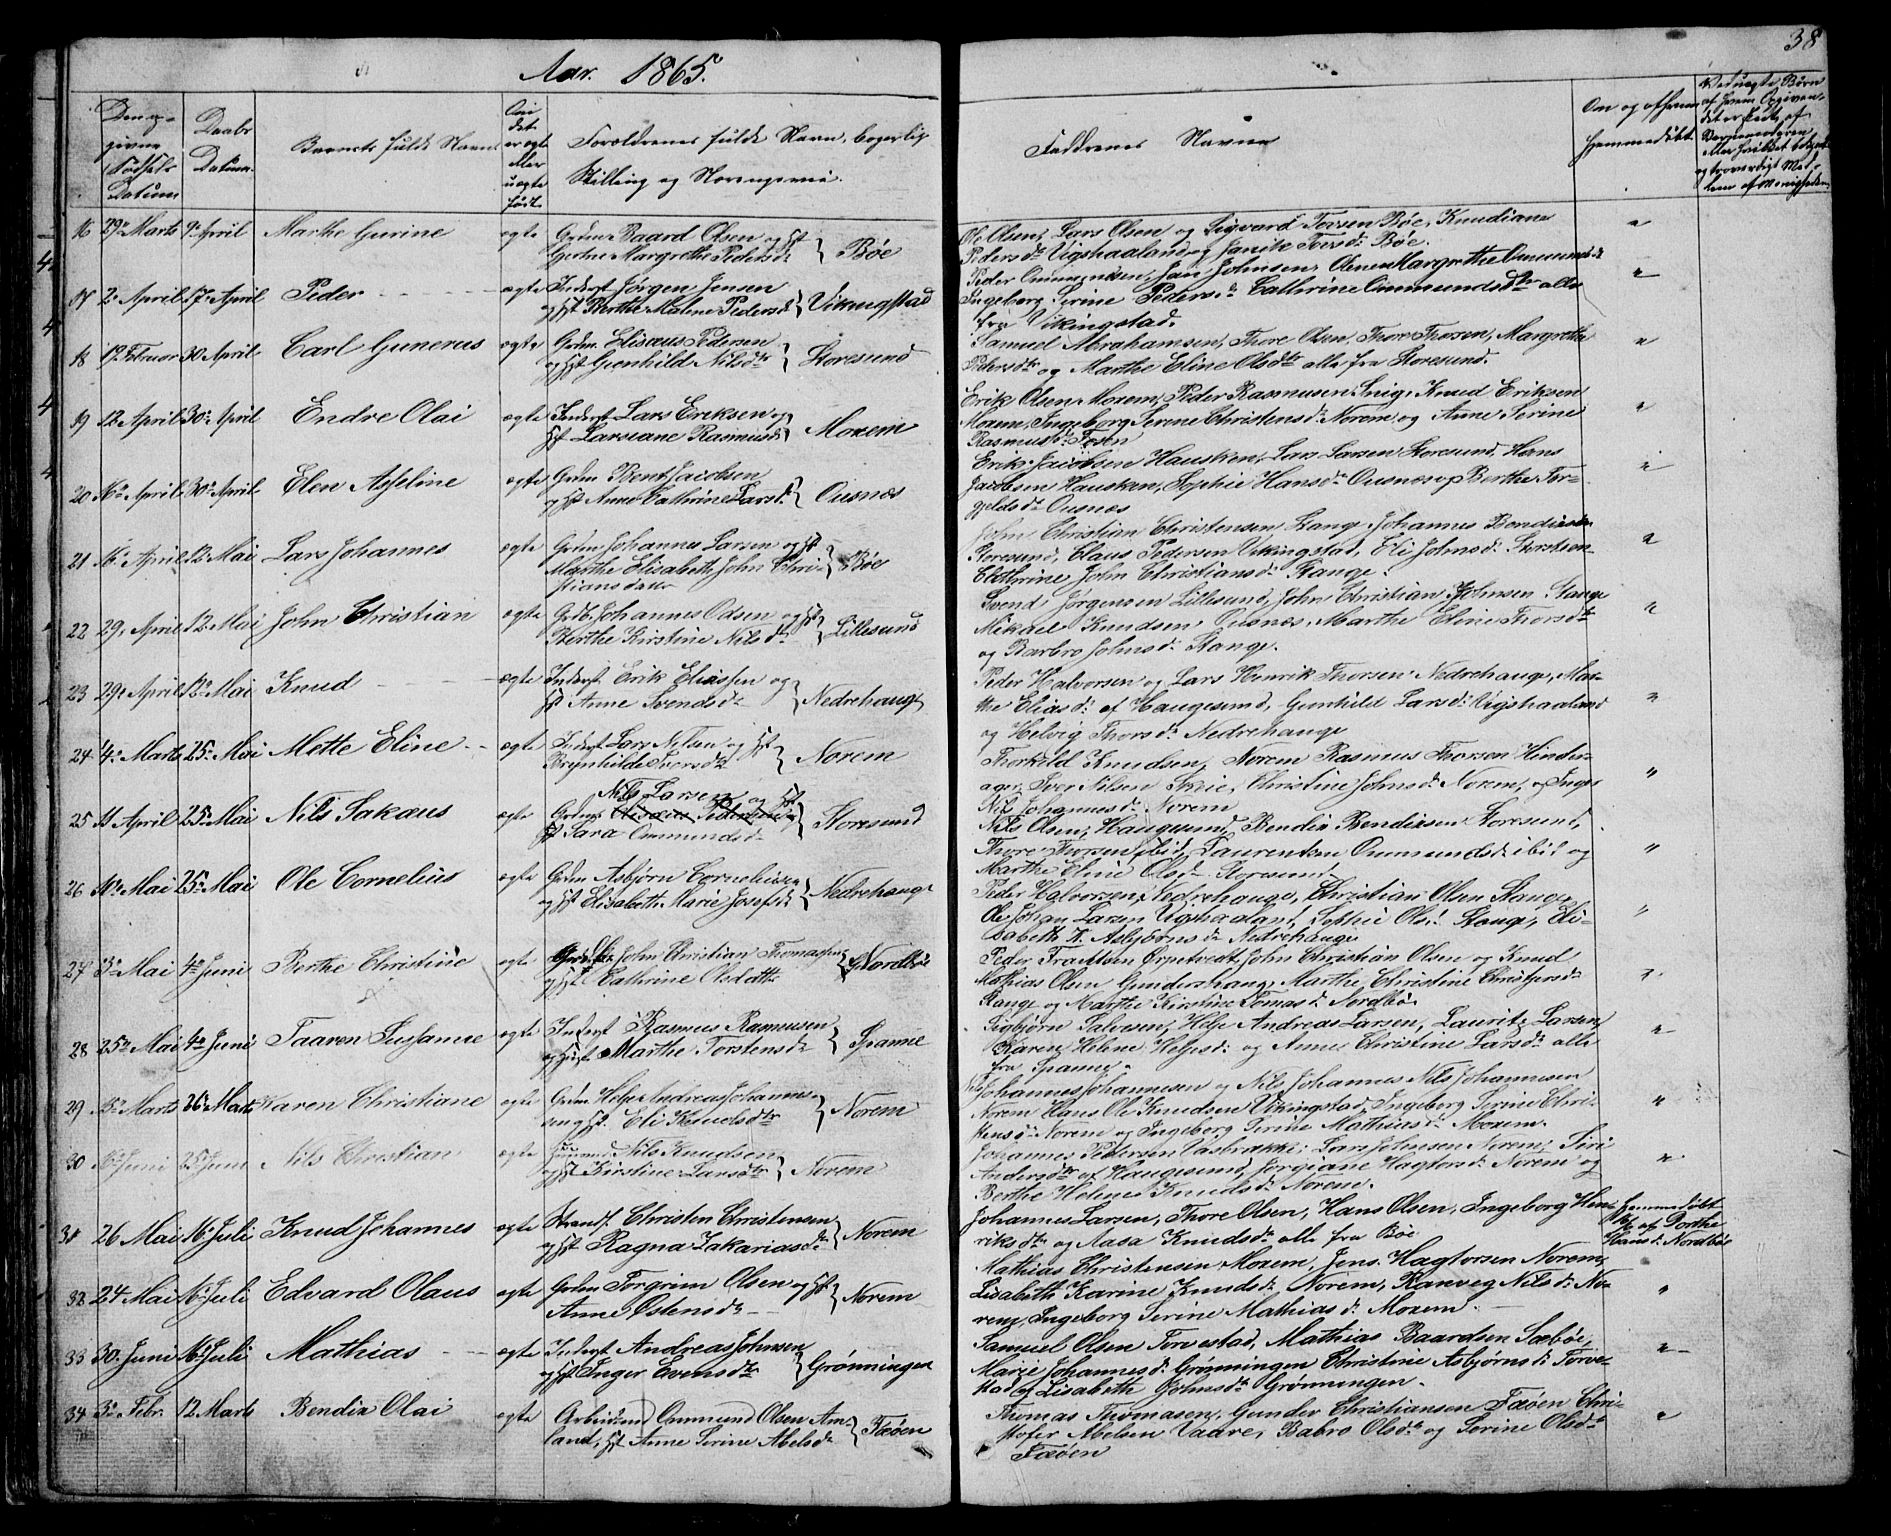 Aar. 1865.
38
Den op-
givne
Fødsels
Datum
Daabs
Datum.
Barnets fulde Navn
Om
det
er ægte
eller
uægte
født.
Forældrenes fulde Navn, borgerlig
Stilling og Næringsvei.
Faddrenes Navne
Om og af hvem
hjemmedøbt
16 29 Marts 9 April Marthe Gurine ægte Grdm Baard Olsen og Hst
Gertine Margrethe Pedersdr } Bøe
Ole Olsen, Lars Olsen og Sigvard Torsen Bøe, Knudiane
Pedersdr Vigshaaland og Janike Torsdr Bøe.
17 2 April 17 April Peder ægte Inderst Jørgen Jensen
og Hst Berthe Malene Pedersdr } Vikingstad
Peder Ommundsen, Jan Johnsen, Olene Margrethe Ommundsdr
Ingeborg Serine Pedersdr Cathrine Ommundsdtr alle
fra Vikingstad.
18 12 Februar 30 April Carl Gunerus ægte Grdm. Elisæus Pedersen
og Hst Gunhild Nilsdtr } Storesund
Samuel Abrahamsen, Thore Olsen, Thore Thorsen, Margrethe
Pedersdtr og Marthe Eline Olsdtr alle fra Storesund.
19 12 April 30 April Endre Olai ægte Inderst Lars Eriksen og
Hst Larseane Rasmusdr } Moxem
Erik Olsen Moxem, Peder Rasmussen Snig, Knud Eriksen
Moxem, Ingeborg Serine Christensdr Norem og Anne Serine
Rasmusdr Fosen
20 16 April 30 April Elen Axeline ægte Grdm Bent Jacobsen
og Hst Anne Cathrine Larsdr } Ousnæs
Erik Jacobsen Hausken, Lars Larsen Storesund, Hans
Jacobsen Hausken, Sophie Hansdr Ousnæs og Berthe Tor-
geldsdr Ousnæs
21 16 April 12 Mai Lars Johannes ægte Grdm Johannes Larsen og Hst
Marthe Elisabeth John Chri-
stiansdatter } Bøe
John Christian Christensen Stange, Johannes Bendixsen
Storesund, Claus Pedersen Vikingstad, Eli Johnsdr
Cathrine John Christiansdr Stange.
22 29 April 12 Mai John Christian ægte Grdb. Johannes Odsen og Hst
Berthe Kirstine Nilsdr } Lillesund
Svend Jørgensen Lillesund, John Christian Johnsen Stange
Mikael Knudsen Ousnæs, Marthe Eline Thorsdtr
og Barbro Johnsdr Stange.
23 29 April 12 Mai Knud ægte Inderst Erik Eliassen og
Hst Anne Svendsdr } Nedrehauge
Peder Halvorsen og Lars Henrik Thorsen Nedrehauge, Mar-
the Eliasdr af Haugesund, Gunhild Larsdr Vigshaaland
og Helvig Thorsdr Nedrehauge
24 4 Marts 25 Mai Mette Eline ægte Inderst Lars Nilsen og Hst
Brynhilde Iversdtr } Norem
Thorkild Knudsen, Norem Rasmus Thorsen Hinder-
ager, Iver Nilsen Skeie, Christine Johnsdr Norem, og Inger
Nils Johannesdr Norem
25 11 April 25 Mai Nils Sakæus ægte Grdm. Nils Larsen og Hst
Elisæus Pedersen og
Hst Sara Ommundsdr } Storesund
Nils Olsen, Haugesund, Bendix Bendixsen Storesund,
Thore Thorsen ibid, Laurentse Ommundsdr ibid og
Marthe Eline Olsdr Storesund
26 10 Mai 25 Mai Ole Cornelius ægte Grdm Asbjørn Corneliusen
og Hst Elisabeth Marie Josefsdr } Nedrehauge
Peder Halvorsen Nedrehauge, Christian Olsen Stange
Ole Johan Larsen Vigshaaland, Sophie Olsdr Stange, Eli-
sabeth K. Asbjørnsdr Nedrehauge
27 3 Mai 4 Juni Berthe Christine ægte John Christian Thomassen
og Hst Cathrine Olsdatter } Nordbø
Peder Frantsen Ørpetvedt, John Christian Olsen og Knud
Mathias Olsen Gundershaug, Marthe Christine Christensdr
Stange og Marthe Kirstine Tomasdr Nordbø
28 25 Mai 4 Juni Taaren Susanne ægte Inderst Rasmus Rasmusen
og Hst Marthe Torstensdr } Spanne
Sigbjørn Salvesen, Helje Andreas Larsen, Lauritz Larsen
Karen Helene Heljesdr og Anne Christine Larsdr alle
fra Spanne
29 13 Marts 26 Marts Karen Christiane ægte Grdm Helje Andreas Johannes-
sen og Hst. Eli Knudsdtr } Norem
Johannes Johannesen og Nils Johannes Nils Johannesen
Norem Hans Ole Knudsen Vikingstad, Ingeborg Serine Chri-
stensdr Norem og Ingeborg Serine Mathiasdr Moxem.
30 16 Juni 25 Juni Nils Christian ægte Nils Knudsen
og Hst Kirstine Larsdtr } Norem
Johannes Pedersen Vasbrække, Lars Johnsen Norem, Siri
Andersdtr af Haugesund, Jørgiane Hagtorsdr Norem og
Berthe Helene Knudsdr Norem.
31 26 Mai 16 Juli Knud Johannes ægte Strands. Christen Christensen
og Hst Ragna Zakariasdr } Norem
Johannes Larsen, Thore Olsen, Hans Olsen, Ingeborg Hen-
riksdtr og Aasa Knudsdr alle fra Bøe
hjemmedøbt
af Dorthe
Hansdr Nordbøe
32 24 Mai 16 Juli Edvard Olaus ægte Grdm Torgrim Olsen og Hst
Anne Østensdr } Norem
Mathias Christensen Moxem, Jens Hagtorsen Norem,
Lisabeth Karine Knudsdr Norem, Ranveig Nilsdr No-
rem, Ingeborg Serine Mathiasdr Moxem.
33 30 Juni 16 Juli Mathias ægte Inderst Andreas Johnsen
og Hst Inger Evensdtr } Grønningen
Samuel Olsen Torvestad, Mathias Baardsen Sæbøe,
Marie Johannesdr Grønningen Christine Asbjørnsdr Torve-
stad og Lisabeth Johnsdtr Grønningen.
34 3 Febr. 12 Marts Bendix Olai ægte Arbeidsmd Ommund Olsen Am-
land, Hst Anne Serine Abelsdr } Fæøen
Thomas Thomasen, Gunder Christiansen Fæøen Chri-
stofer Abelsen Vaare, Babro Olsdtr og Serine Olsdtr
Fæøen